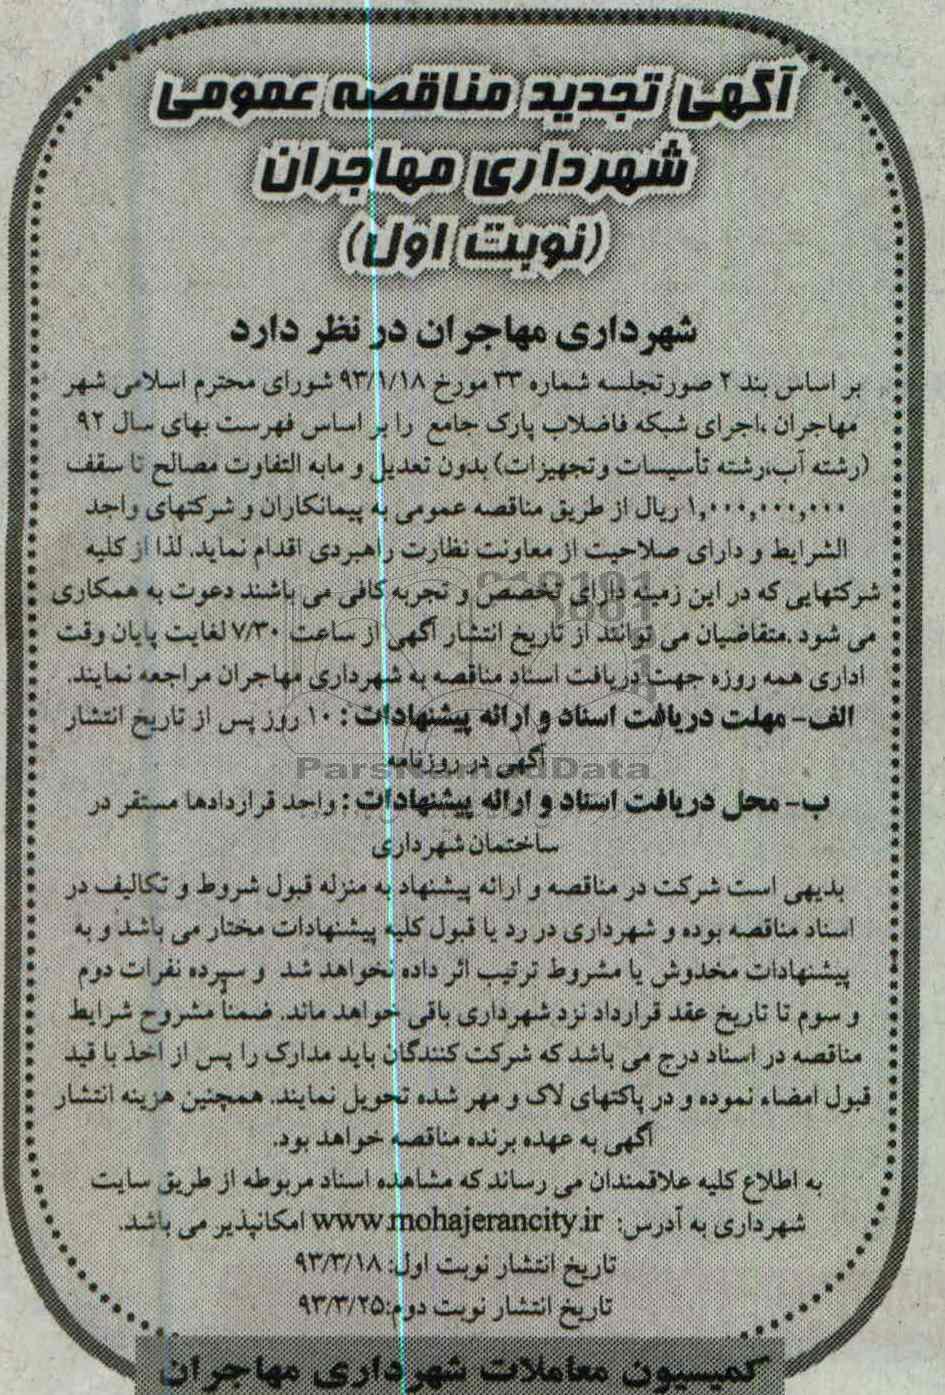 آگهی تجدید مناقصه عمومی
شهرداری مهاجران
(نوبت اول)
شهرداری مهاجران در نظر دارد
بر اساس بند ۲ صورتجلسه شماره ۳۳ مورخ ۹۳/۱/۱۸ شورای محترم اسلامی شهر
مهاجران ،اجرای شبکه فاضلاب پارک جامع را بر اساس فهرست بهای سال ۹۲
(رشته آب،رشته تأسیسات وتجهیزات) بدون تعدیل و مابه التفاوت مصالح تا سقف
۱,۰۰۰,۰۰۰,۰۰۰ ریال از طریق مناقصه عمومی به پیمانکاران و شرکتهای واجد
الشرایط و دارای صلاحیت از معاونت نظارت راهبردی اقدام نماید. لذا از کلیه
شرکتهایی که در این زمینه دارای تخصص و تجربه کافی می باشند دعوت به همکاری
می شود .متقاضیان می توانند از تاریخ انتشار آگهی از ساعت ۷/۳۰ لغایت پایان وقت
اداری همه روزه جهت دریافت اسناد مناقصه به شهرداری مهاجران مراجعه نمایند.
الف- مهلت دریافت اسناد و ارائه پیشنهادات : ۱۰ روز پس از تاریخ انتشار
آگهی در روزنامه
ParsNamadData
ب- محل دریافت اسناد و ارائه پیشنهادات : واحد قراردادها مستقر در
ساختمان شهرداری
بدیهی است شرکت در مناقصه و ارائه پیشنهاد به منزله قبول شروط و تکالیف در
اسناد مناقصه بوده و شهرداری در رد یا قبول کلیه پیشنهادات مختار می باشد و به
پیشنهادات مخدوش یا مشروط ترتیب اثر داده نخواهد شد و سپرده نفرات دوم
و سوم تا تاریخ عقد قرارداد نزد شهرداری باقی خواهد ماند. ضمناً مشروح شرایط
مناقصه در اسناد درج می باشد که شرکت کنندگان باید مدارک را پس از اخذ با قید
قبول امضاء نموده و در پاکتهای لاک و مهر شده تحویل نمایند. همچنین هزینه انتشار
آگهی به عهده برنده مناقصه خواهد بود.
به اطلاع کلیه علاقمندان می رساند که مشاهده اسناد مربوطه از طریق سایت
شهرداری به آدرس: www.mohajerancity.ir امکانپذیر می باشد.
تاریخ انتشار نوبت اول: ۹۳/۳/۱۸
تاریخ انتشار نوبت دوم:۹۳/۳/۲۵
کمیسیون معاملات شهرداری مهاجران